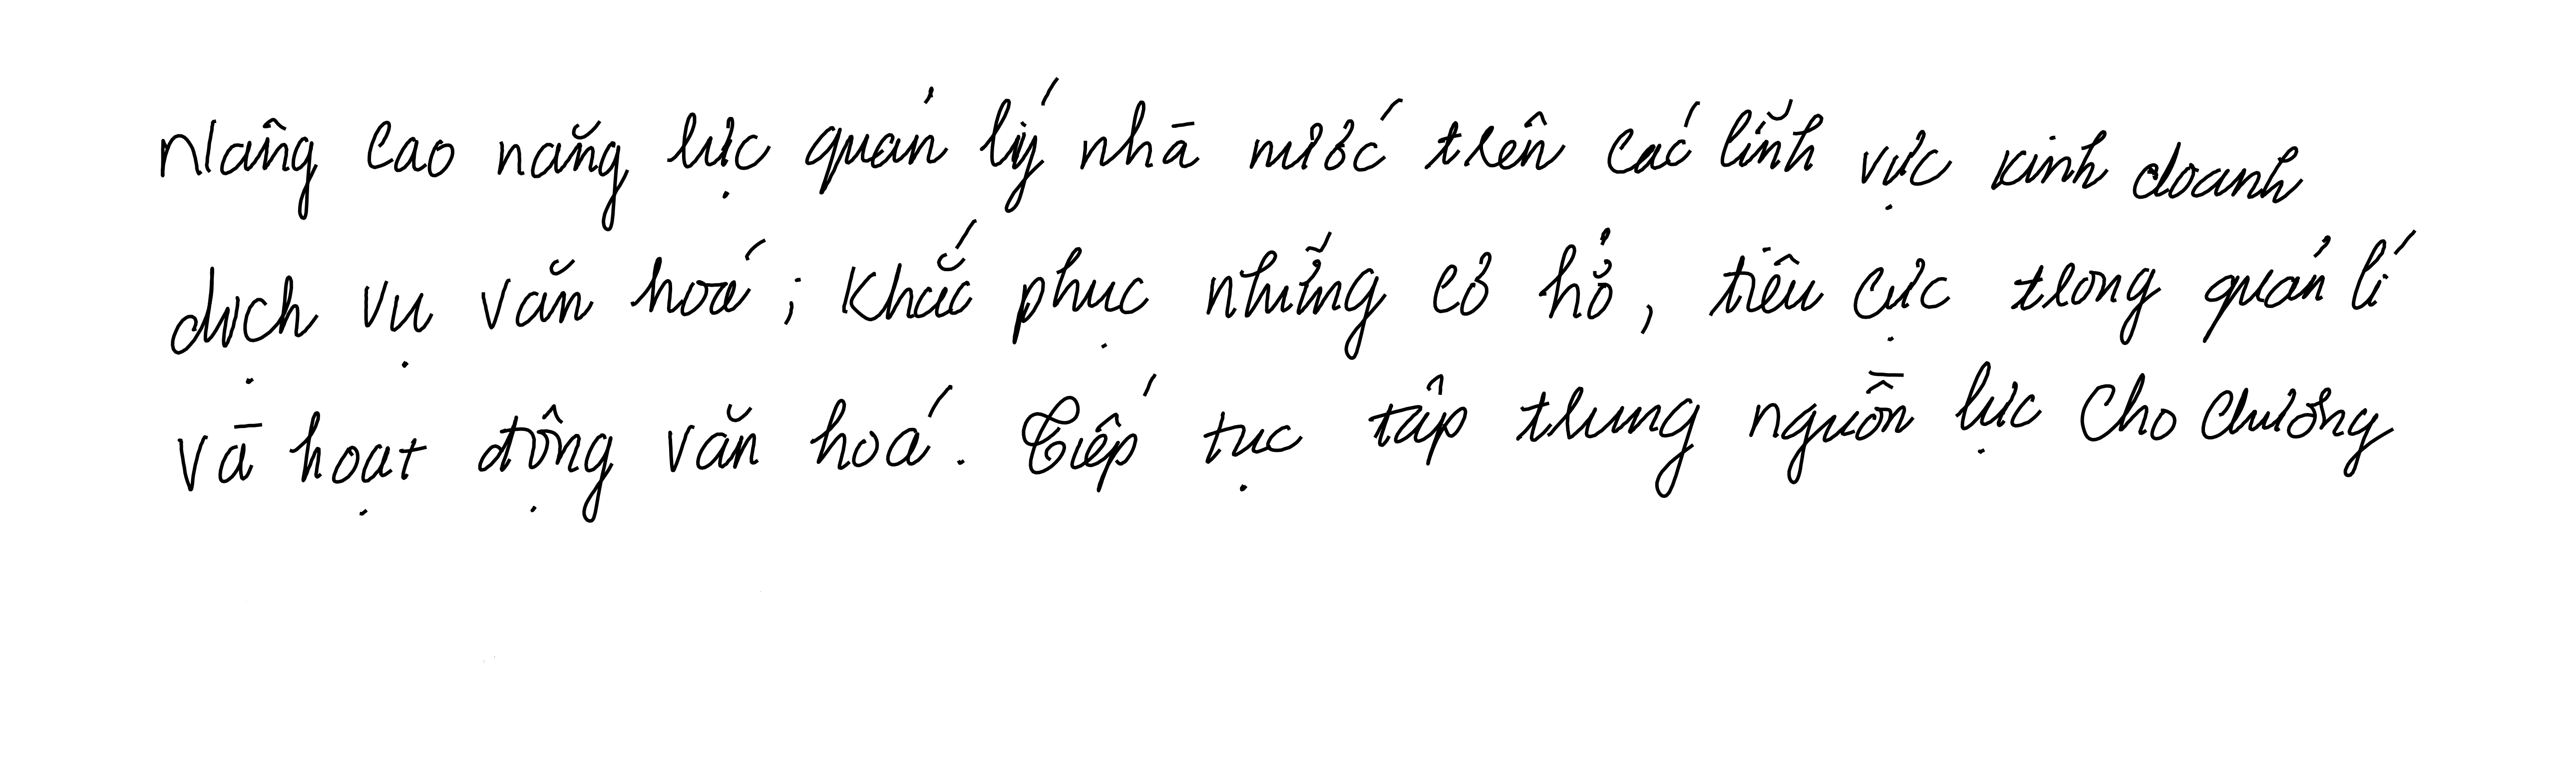 Nâng cao năng lực quản lý nhà nước trên các lĩnh vực kinh doanh
dịch vụ văn hoá; khắc phục những sơ hở, tiêu cực trong quản lí
và hoạt động văn hoá. Tiếp tục tập trung nguồn lực cho chương